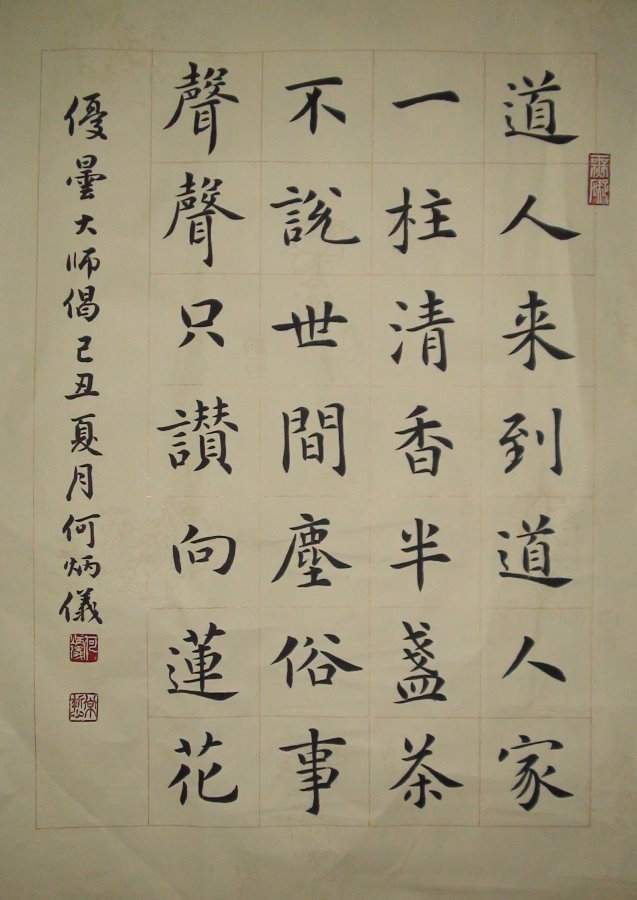 道人来到道人家
一柱清香半盏茶
不說世間塵俗事
聲聲只讃向蓮花
優曇大师偈己丑夏月何炳儀